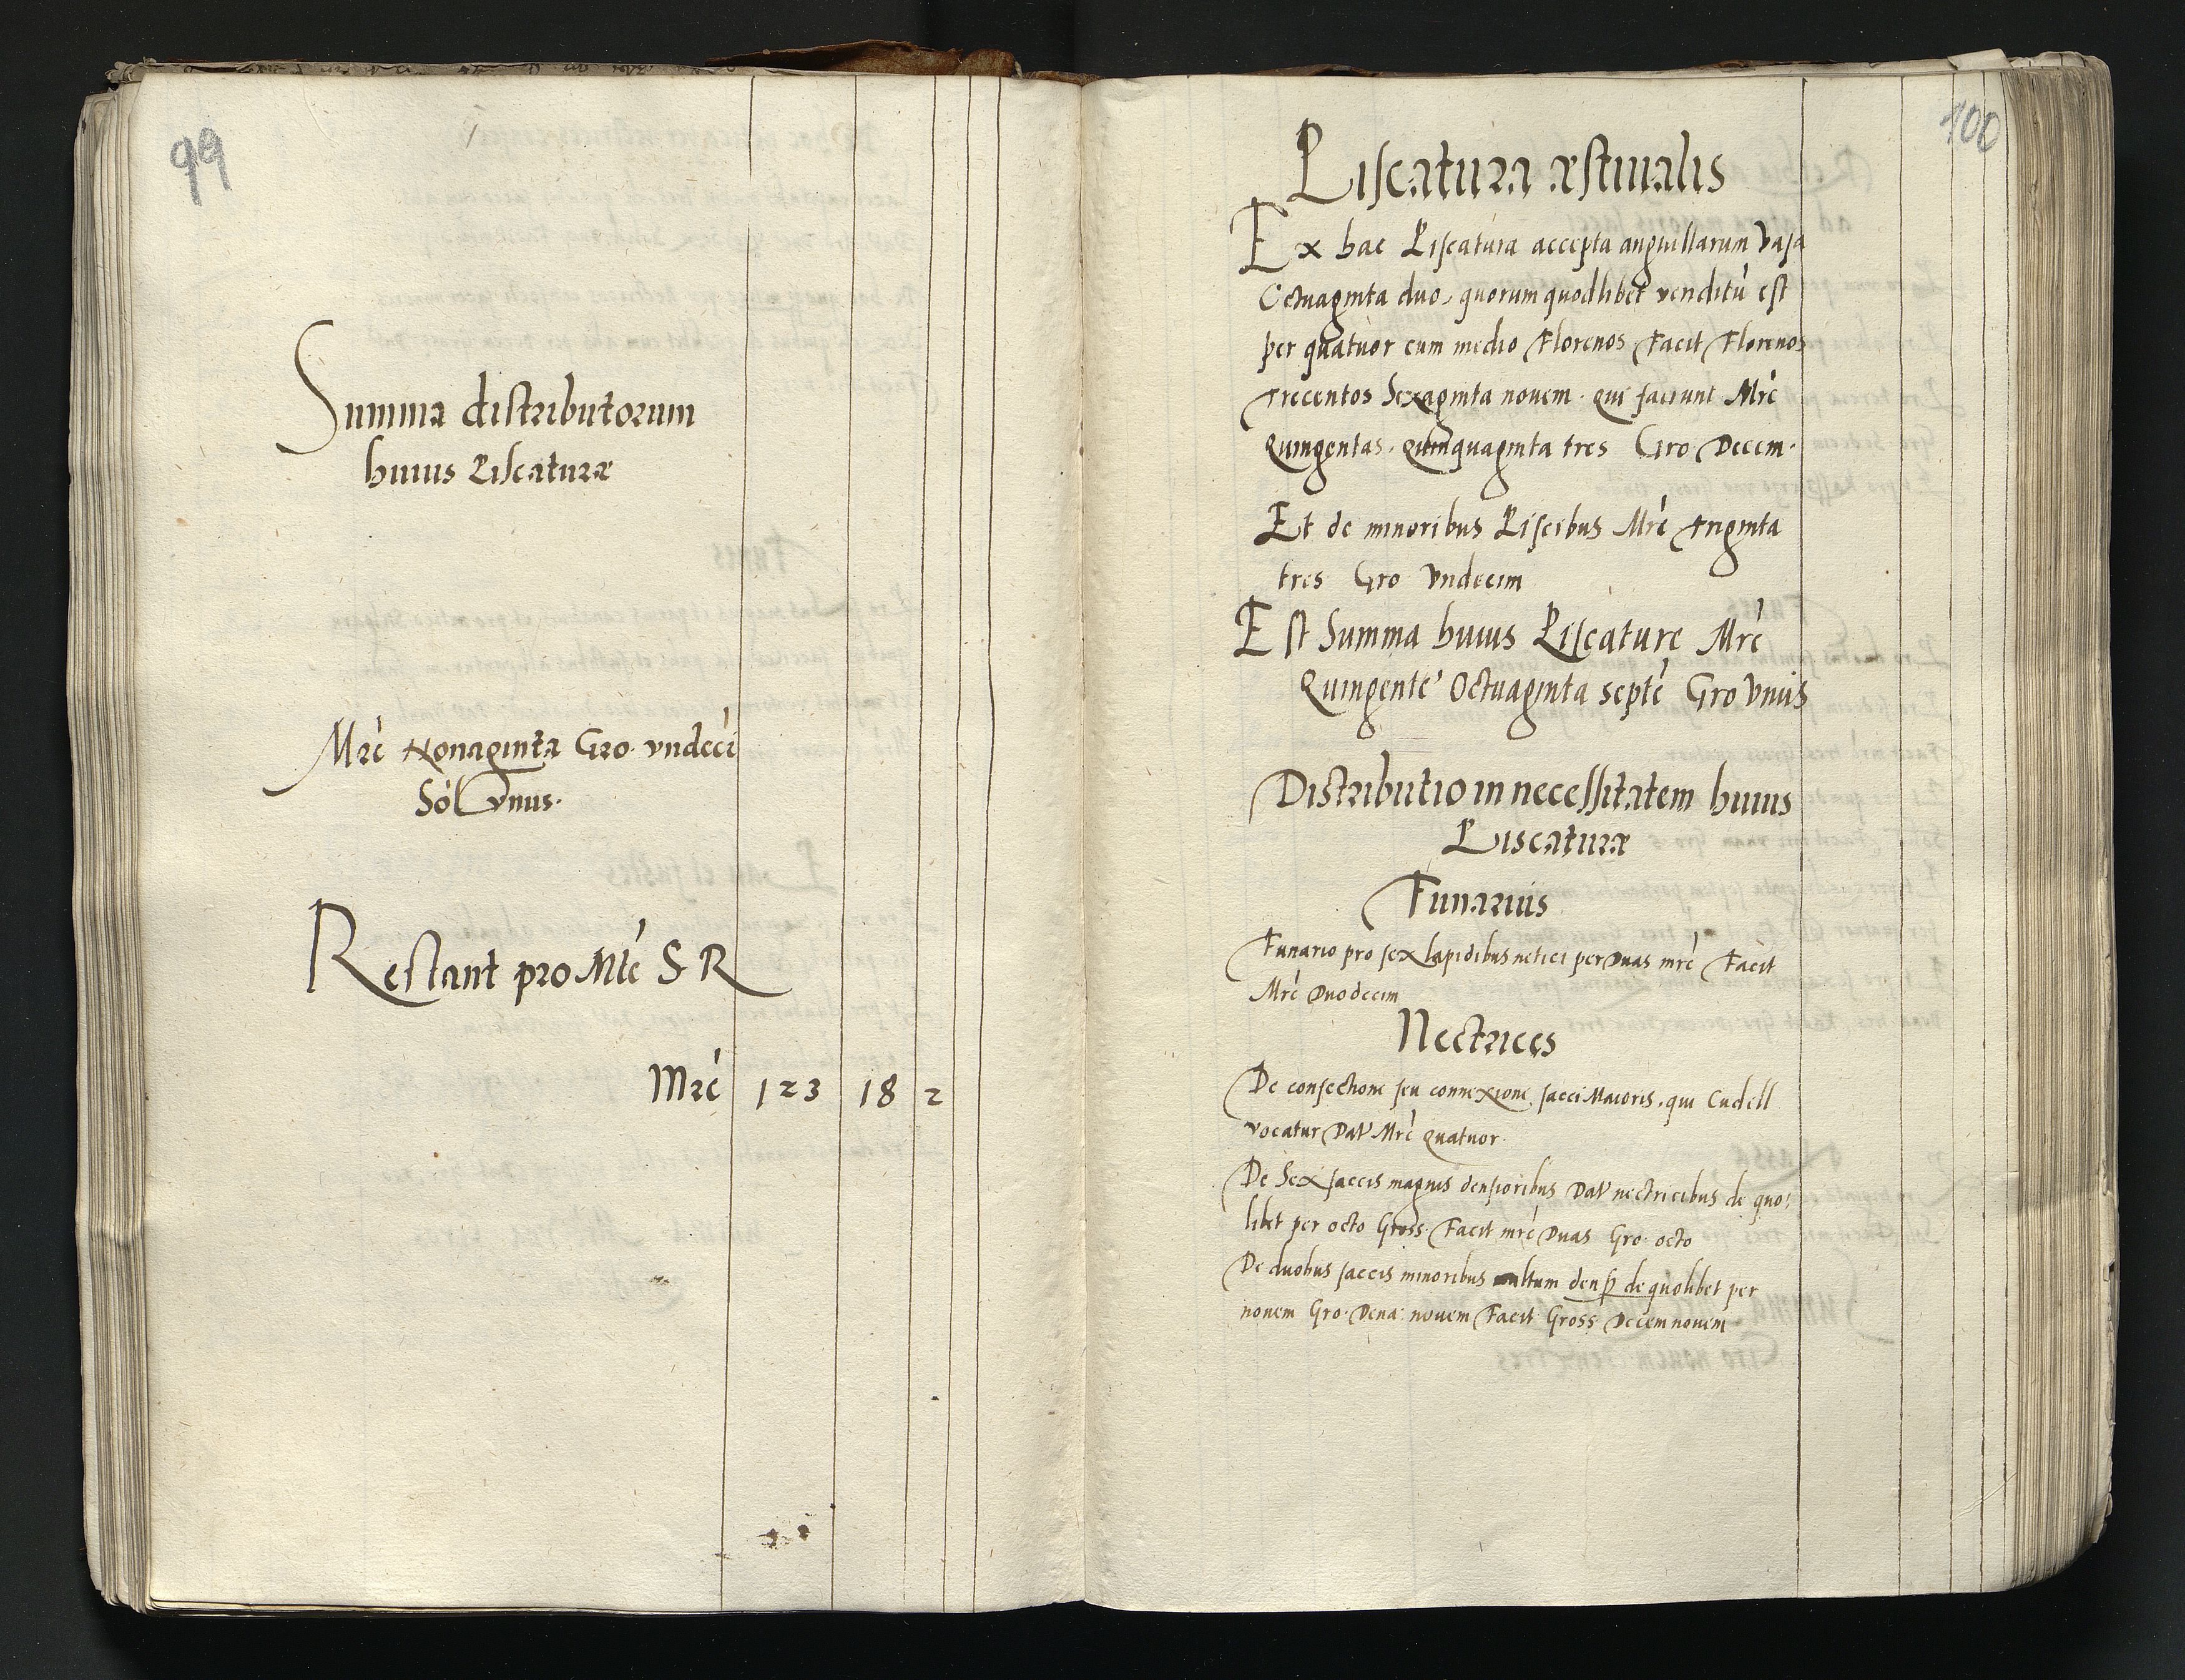 99
Summa distributorum
huius Piscaturæ
Mrc Nonaginta Gro. vndeci
Sol vnus.
Restant pro Mte S R
Mrc 123 18 2
100
Piscatura æstiualis
Ex hac Piscatura accepta anguillarum Vasa
Octuaginta duo, quorum quodlibet venditu est
per quatuor cum medio Florenos Facit Florenos
Trecentos Sexaginta novem. qui faciunt Mrc
Quingentas. Quinquaginta tres Gro Decem.
Et de minoribus Piscibus Mrc triginta
tres Gro Vndecim
Est Summa huius Piscature Mrc
Quingente Octuaginta septe Gro Vnus
Distributio in necessitatem huius
Piscaturæ
Funarius
Funario pro sex lapidibus netici per Duas mrc Facit
Mrc Duodecim
Nectrices
De confectione seu connexione sacci Maioris. qui Cudell
vocatur Dat Mrc quatuor.
De Sex saccis magnis densioribus Dat nectricibus de quo:
libet per octo Gross. Facit mrc Duas Gro. octo
De duobus saccis minoribus multum dens de quolibet per
nouem Gro. Dena: nouem Facit Gross Decemnouem